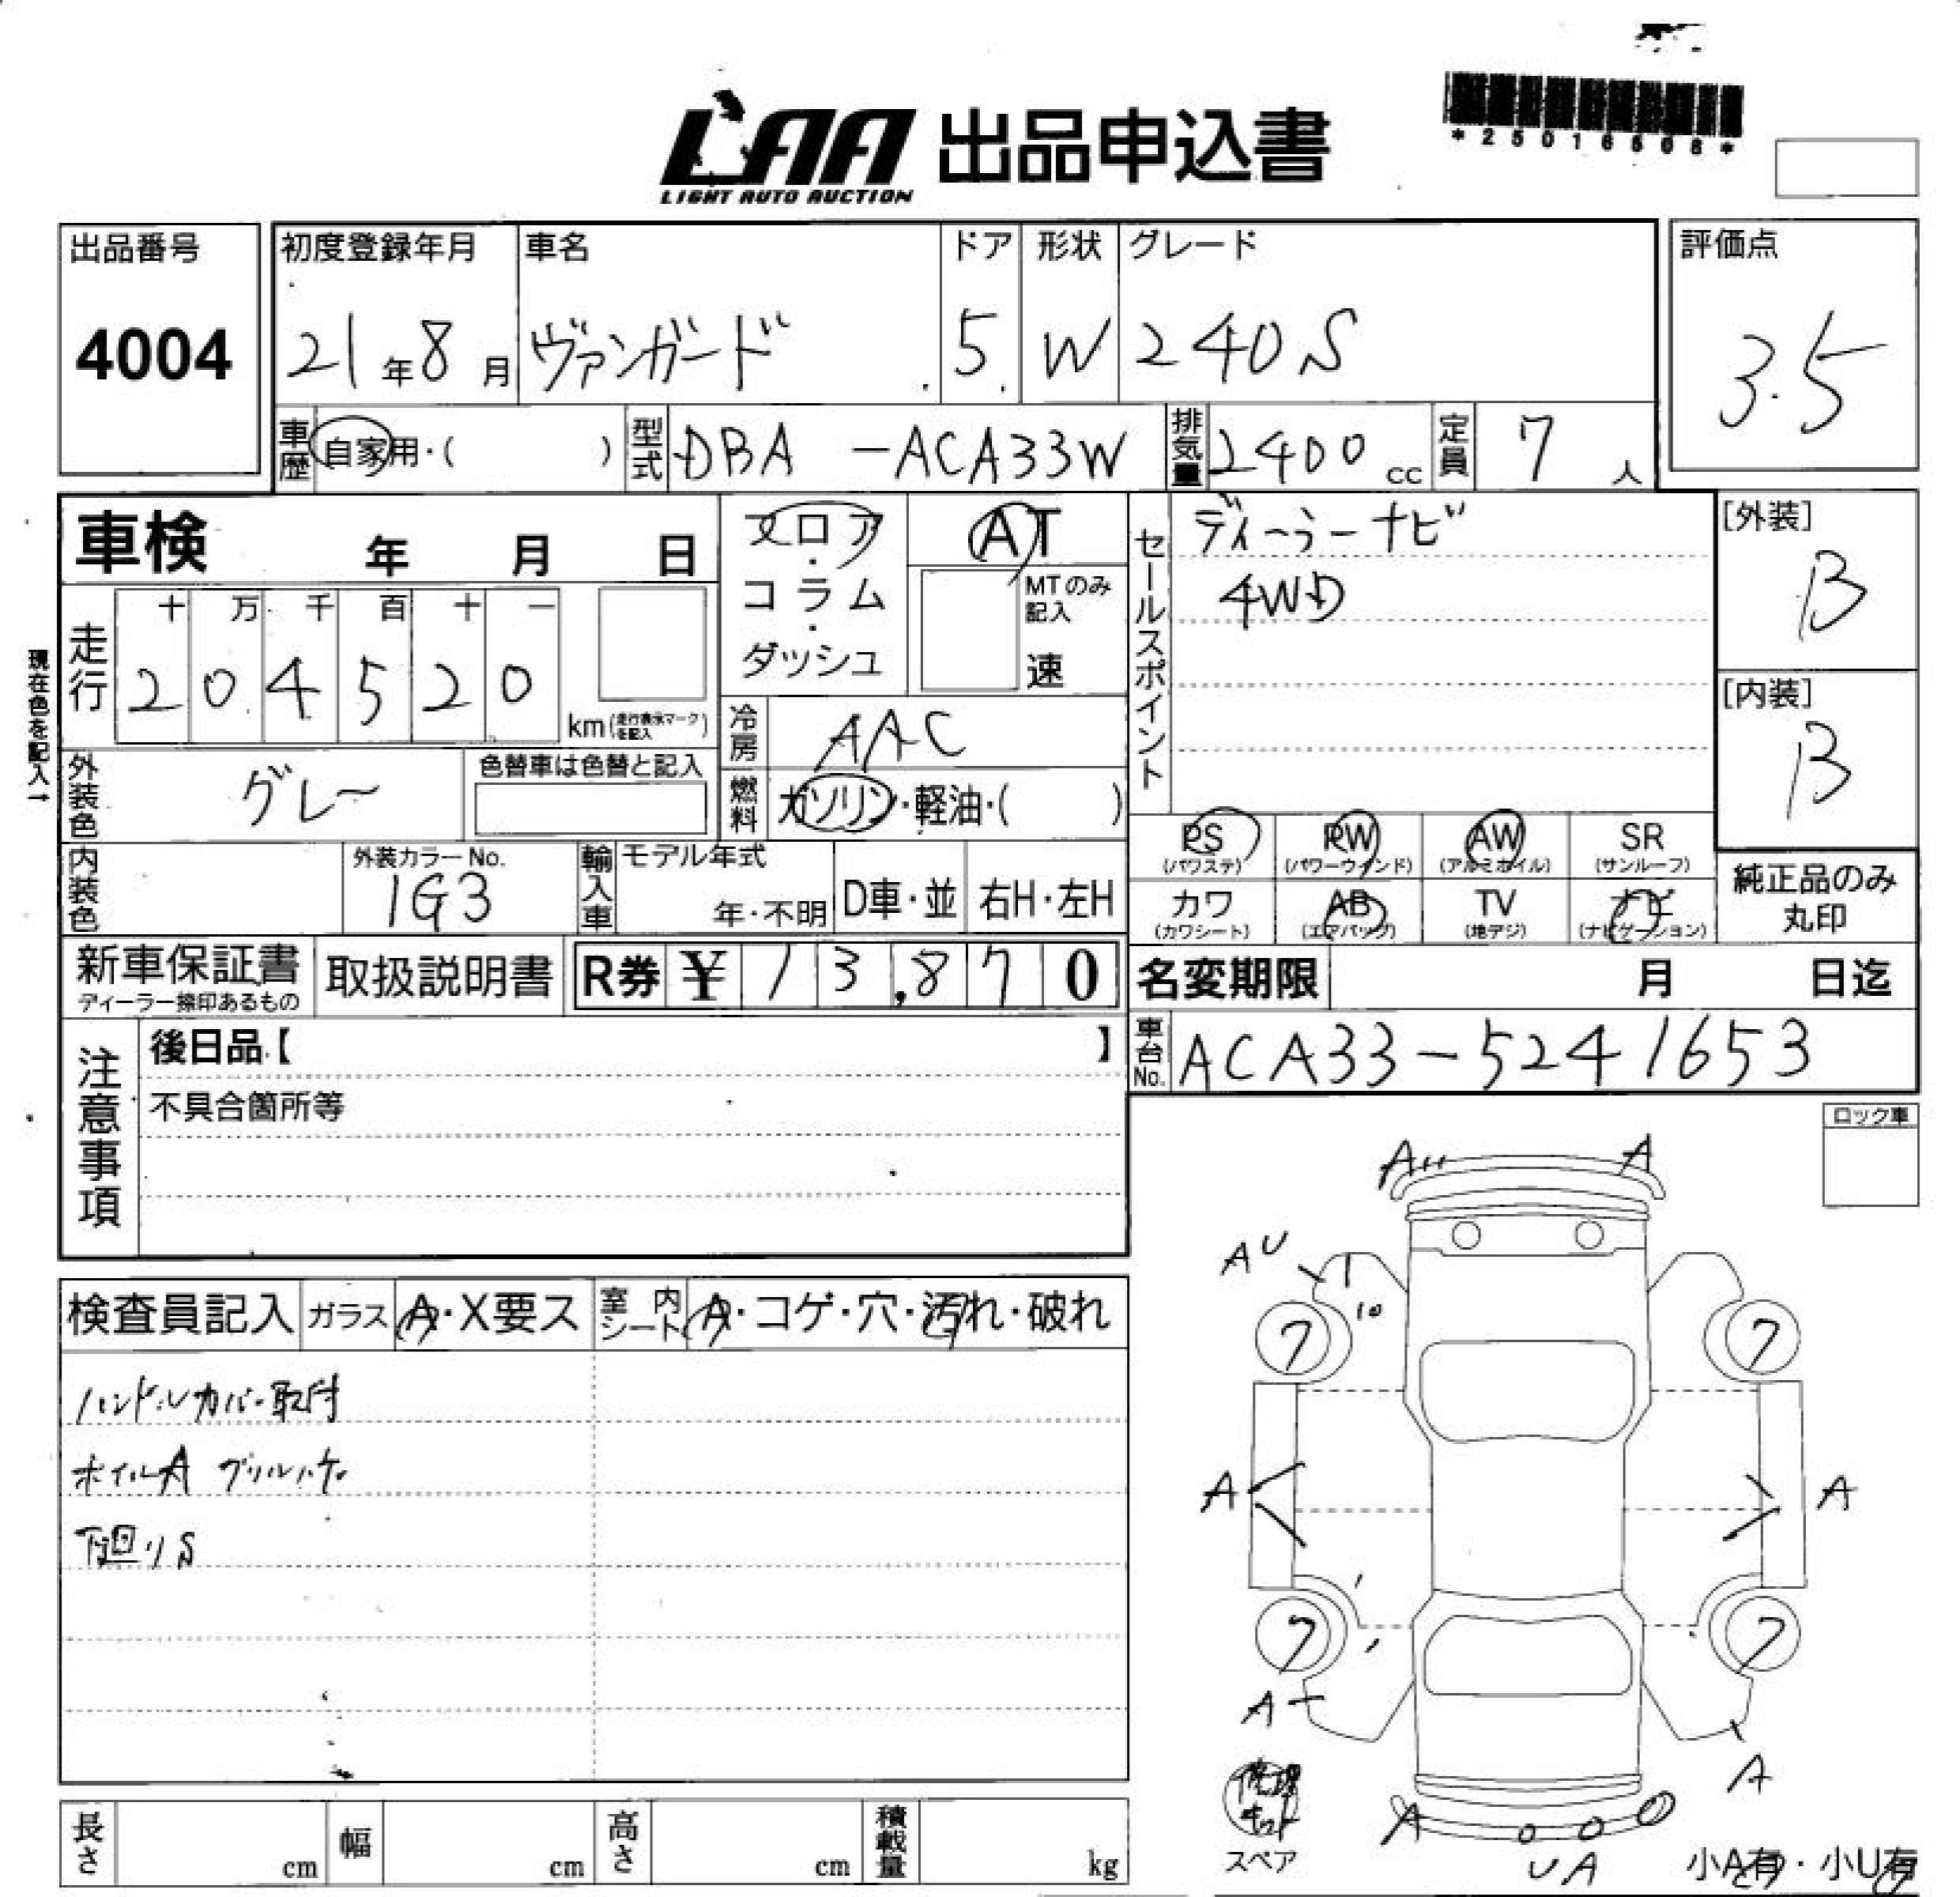 LAA 出品申込書
LIGHT AUTO AUCTION
出品番号
4004
初度登録年月
21年8月
車名
ヴァンガード
ドア
5
形状
W
グレード
240S
評価点
3.5
車歴
自家用・( )
型式
DBA -ACA33W
排気量
2400cc
定員
7人
車検 年 月 日
フロア
・
コラム
・
ダッシュ
AT
MTのみ記入
速
セールスポイント
ディーラーナビ
4WD
[外装]
B
[内装]
B
現在色を記入→
走行
十 万 千 百 十 一
2 0 4 5 2 0
km(走行表示マークを記入)
冷房
AAC
外装色
グレー
色替車は色替と記入
燃料
ガソリン・軽油・( )
内装色
外装カラーNo.
1G3
輸入車
モデル年式
年・不明
D車・並
右H・左H
PS
(パワステ)
PW
(パワーウインド)
AW
(アルミホイル)
SR
(サンルーフ)
カワ
(カワシート)
AB
(エアバッグ)
TV
(地デジ)
ナビ
(ナビゲーション)
純正品のみ
丸印
新車保証書
ディーラー捺印あるもの
取扱説明書
R券 ¥ 13,870
名変期限 月 日迄
車台No.
ACA33-5241653
注意事項
後日品【 】
不具合箇所等
ロック車
検査員記入
ガラス
A・X要ス
室内シート
A・コゲ・穴・汚れ・破れ
ハンドルカバー取付
ホイルA グリルハゲ
下廻りS
A
A
AU
10
7
7
A
A
7
7
A
A
修理キット
スペア
A
UA
小A有・小U有
長さ
cm
幅
cm
高さ
cm
積載量
kg